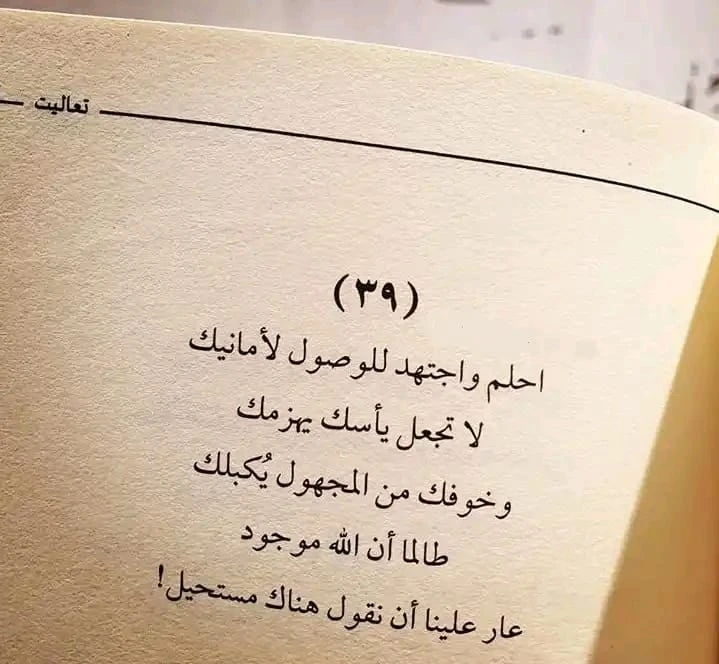 تعاليت
(٣٩)
احلم واجتهد للوصول لأمانيك
لا تجعل يأسك يهزمك
وخوفك من المجهول يُكبلك
طالما أن الله موجود
عار علينا أن نقول هناك مستحيل!